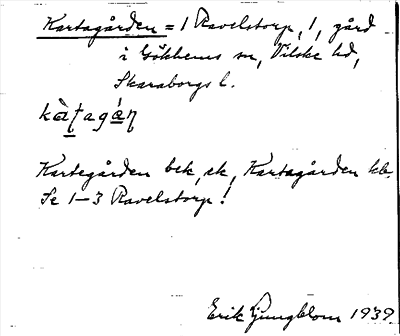 Kartagården = 1 Ravelstorp, 1, gård
i Gökhems sn, Vilske hd,
Skaraborgs l.
kàʈagáɳ
Kartegården bek, sk, Kartagården kb.
Se 1–3 Ravelstorp!
Erik Ljungblom 1939